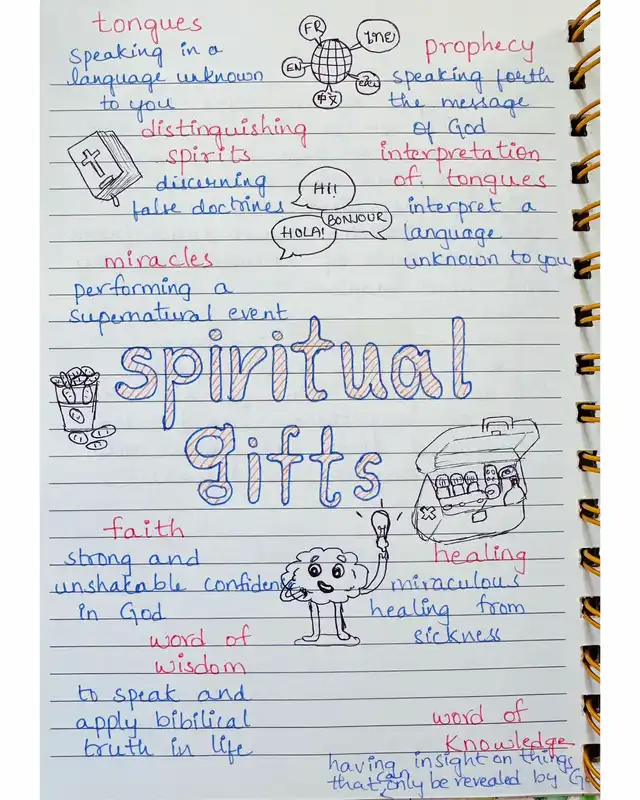 tongues
speaking in a
language unknown
to you
FR
EN
中文
prophecy
speaking forth
the message
of God
distinguishing
spirits
discerning
false doctrines
Hi!
BONJOUR
HOLA!
interpretation
of tongues
interpret a
language
unknown to you
miracles
performing a
supernatural event
spiritual
gifts
faith
strong and
unshakable confidence
in God
healing
miraculous
healing from
sickness
word of
wisdom
to speak and
apply bibilical
truth in life
word of
Knowledge
having insight on things
that can only be revealed by G